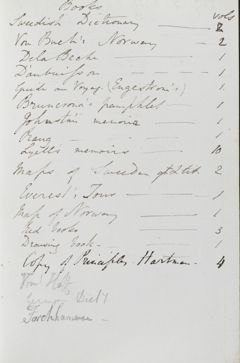 Books vols
Swedish Dictionary — 2
Von Buch's Norway — 2
Dela Beche — 1
Daubuisson — 1
Guide du Voyag (Engestrom's) 1
pamphlet — 1
Johnston memoir — 1
1
Lyell's memoirs — 10
Maps of Sweden 2
Everest's Tour — 1
Map of Norway — 1
Red books — 3
Drawing book — 1
Copy of Principles, Hartman — 4
Von
Dict
Forchhammer —